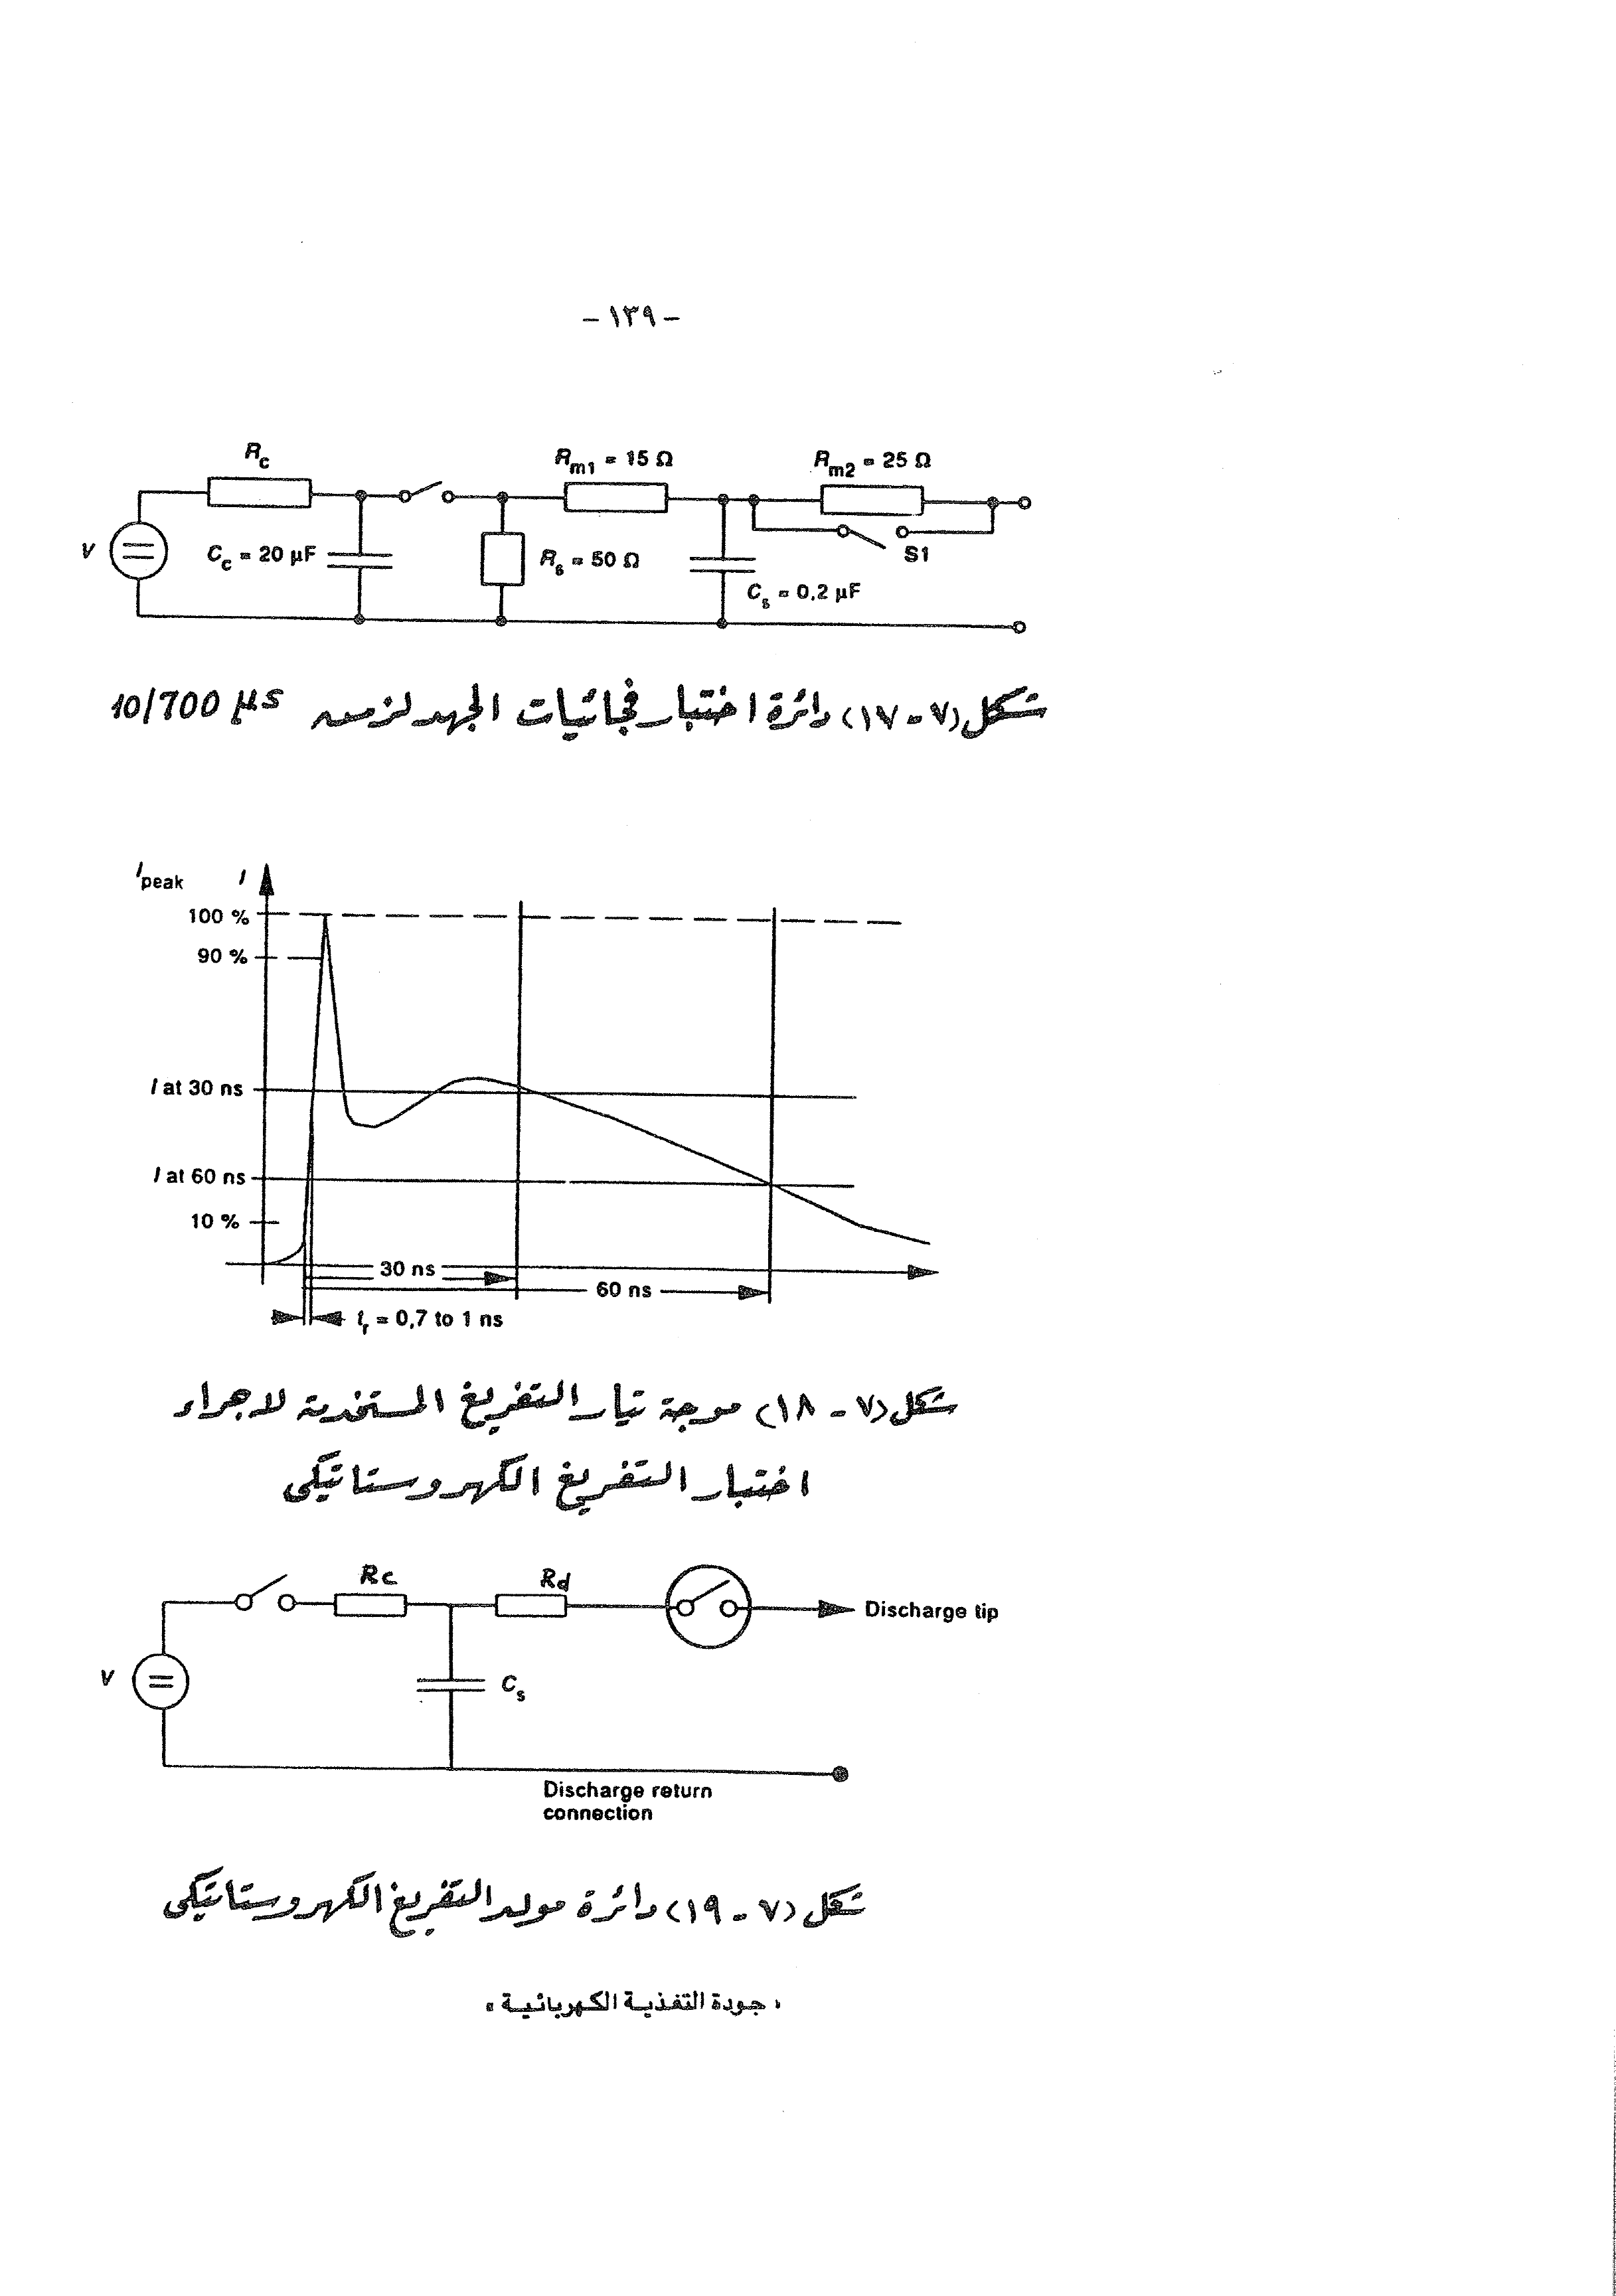 - ١٣٩ -
R_c
R_m1 = 15 Ω
R_m2 = 25 Ω
V
C_c = 20 µF
R_s = 50 Ω
S1
C_s = 0,2 µF
شكل (٧ - ١٧) دائرة اختبار فجائيات الجهد لزمن 10/700 µs
I_peak
I
100 %
90 %
I at 30 ns
I at 60 ns
10 %
30 ns
60 ns
t_r = 0,7 to 1 ns
شكل (٧ - ١٨) موجة تيار التفريغ المستخدمة لاجراء
اختبار التفريغ الكهروستاتيكى
Rc
Rd
Discharge tip
V
C_s
Discharge return
connection
شكل (٧ - ١٩) دائرة مولد التفريغ الكهروستاتيكى
« جودة التغذية الكهربائية »